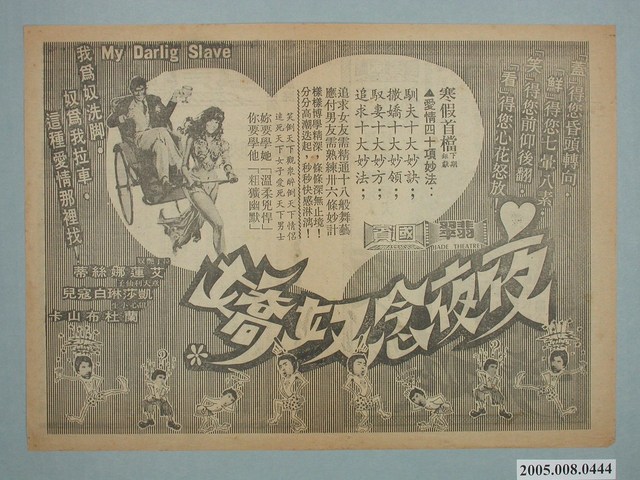 「蓋」得您昏頭轉向.
「鮮」得您七暈八素.
「笑」得您前仰後翻.
「看」得您心花怒放!
寒假首檔
下期獻
▲愛情四十項妙法:
馴夫十大妙訣;
撒嬌十大妙領;
馭妻十大妙方;
追求十大妙法;
國賓
翡翠
JADE THEATRE
追求女友需精通十八般舞藝
應付男友需熟練卅六條妙計
樣樣博學精深,條條深無止境!
分分高潮迭起,秒秒快感淋漓!
笑倒天下觀衆醉倒天下情侶
迷死天下女子愛死天下男士
妳要學她「溫柔兇悍」
你要學他「粗獷幽默」
My Darlig Slave
我爲奴洗脚.
奴爲我拉車.
這種愛情那裡找!
夜夜念奴嬌
艾蓮娜絲蒂
凱莎琳白寇兒
蘭杜布山卡
2005.008.0444